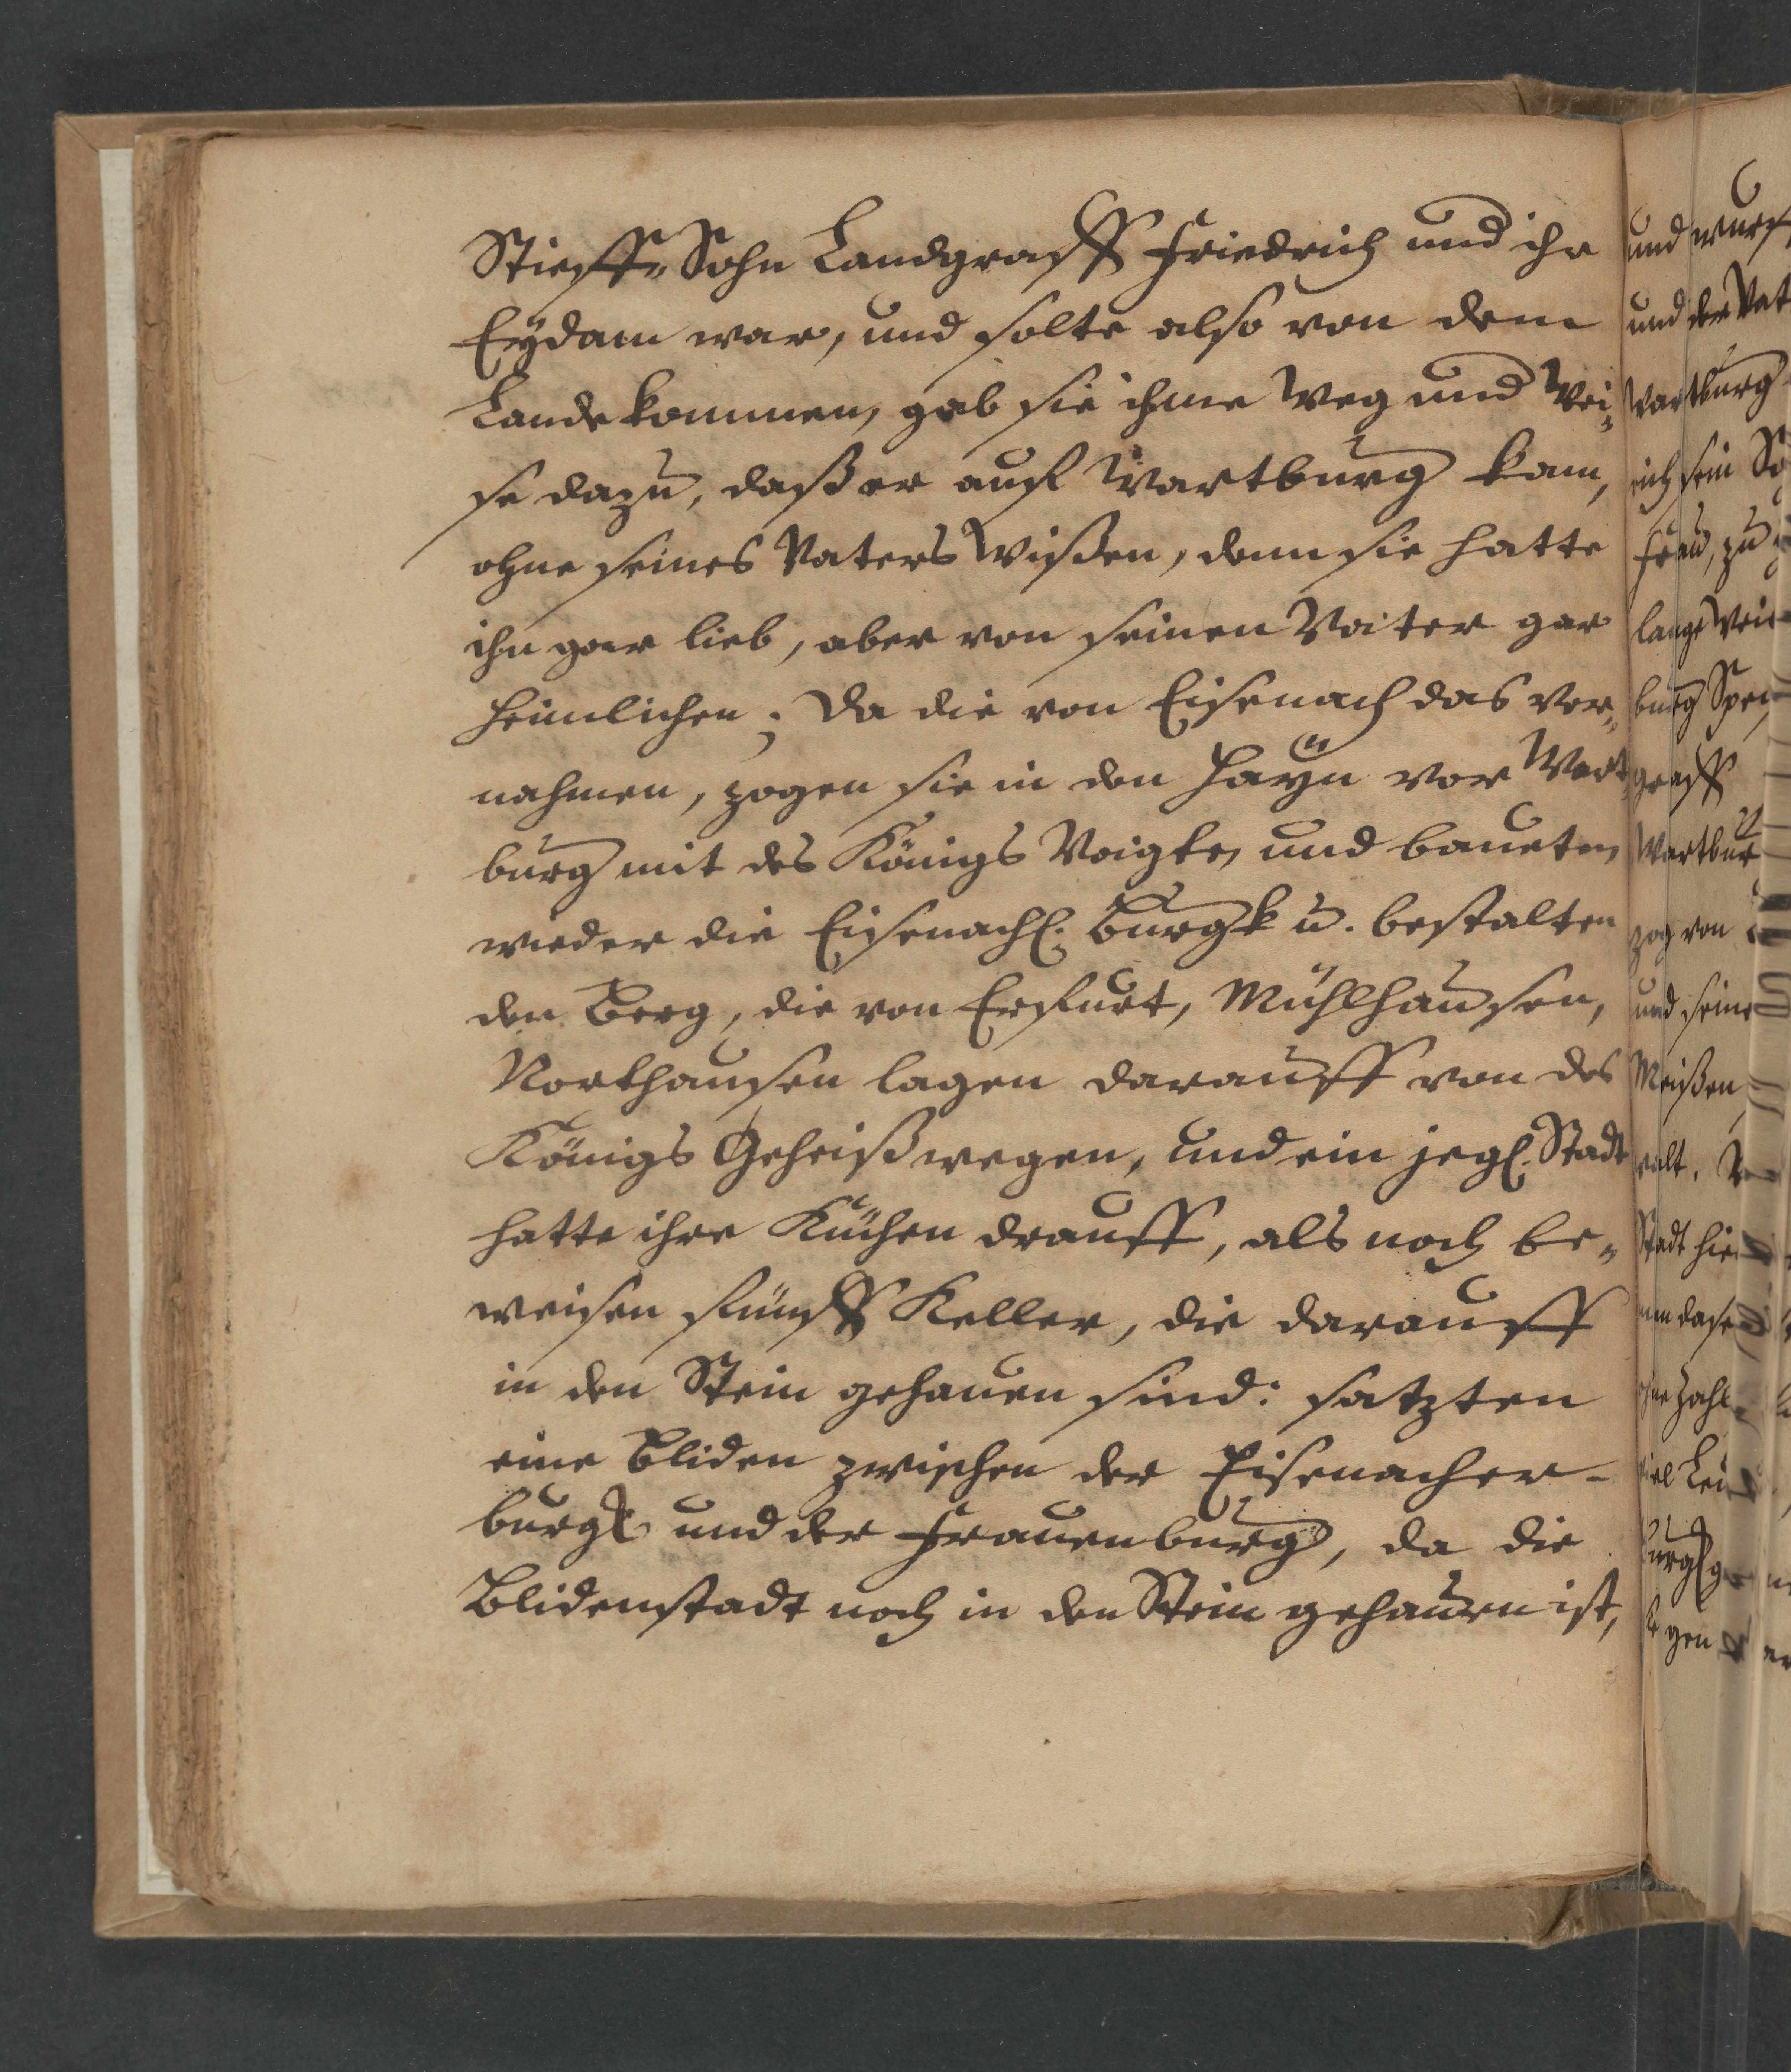 Stieff-Sohn Landgraff Friedrich und ihr
Eydam war, und solte also von dem
Lande kommen, gab sie ihme Weg und Wei-
se dazu, daß er auf Wartburg kam,
ohne seines Vaters Wißen, denn sie hatte
ihn gar lieb, aber von seinen Vater gar
heimlichen; Da die von Eisenach das ver-
nahmen, zogen sie in den Hayn vor Wart-
burg mit des Königs Voigte, und baueten
wieder die Eisenachl. Burgk u. bestalten
den Berg, die von Erfurt, Mühlhausen,
Northausen lagen darauff von des
Königs Geheiß wegen, und ein jegl. Stadt
hatte ihre Küchen drauff, als noch be-
weisen fünff Keller, die darauff
in den Stein gehauen sind: satzten
eine Bliden zwischen der Eisenacher-
burgk und der Frauenburg, da die
Blidenstadt noch in den Stein gehauen ist,
und wurf
und der Vat
Wartburg
rich sein So
Frau, zu
lange Wei
burg Spei
graff
Wartbur
zog von
und seine
Meißen
walt.
Stadt hie
ohne Zahl
viel Leu